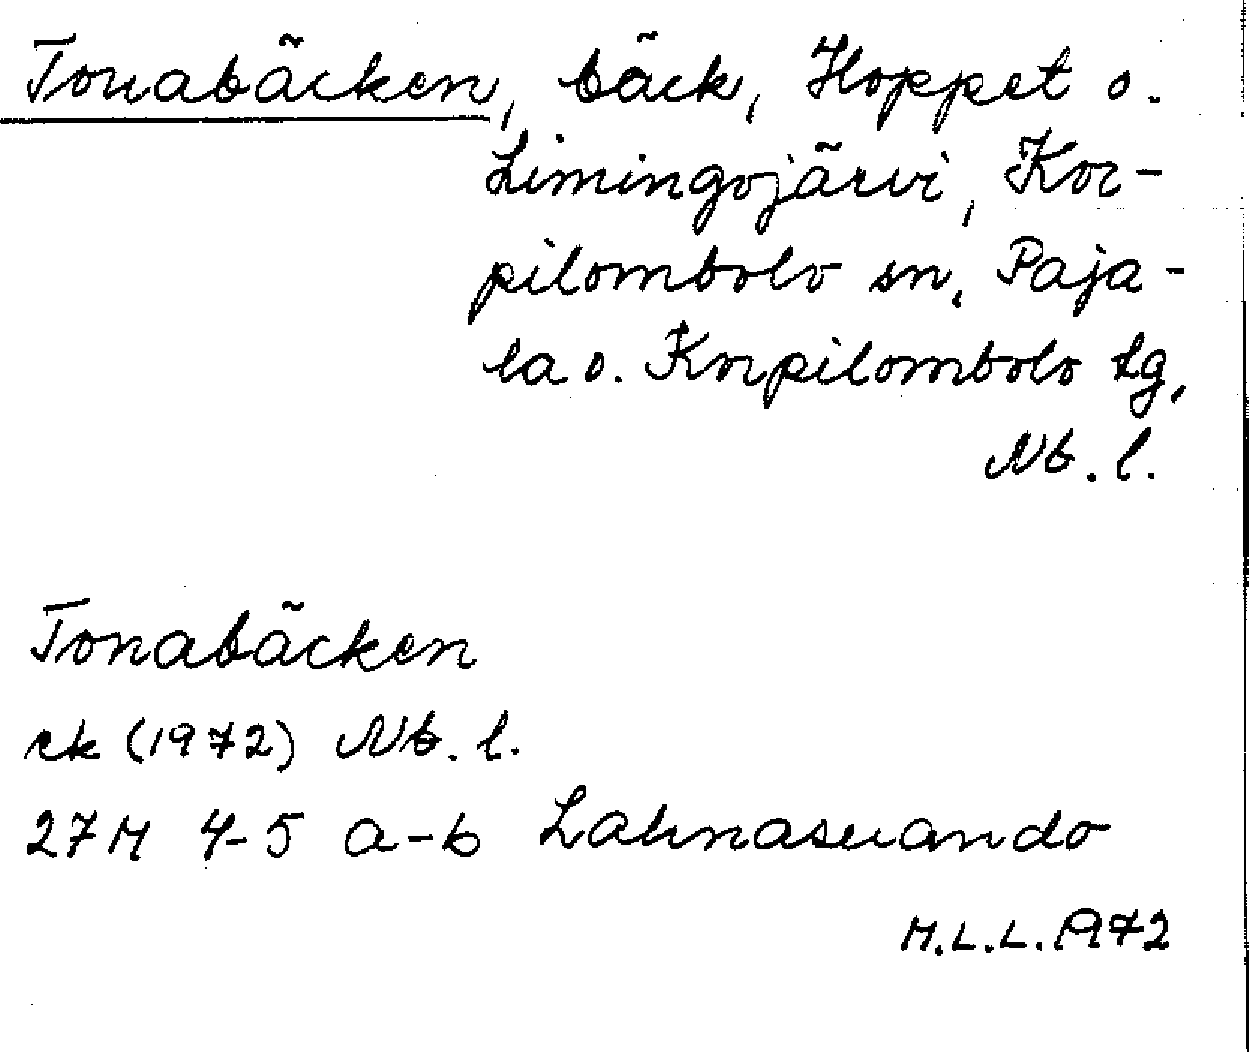 Tonabäcken, bäck, Hoppet o.
Limingojärvi, Kor-
pilombolo sn, Paja-
la o. Korpilombolo tg,
Nb. l.
Tonabäcken
ek (1972) Nb. l.
27M 4-5 a-b Lahnasuando
M.L.L. 1972